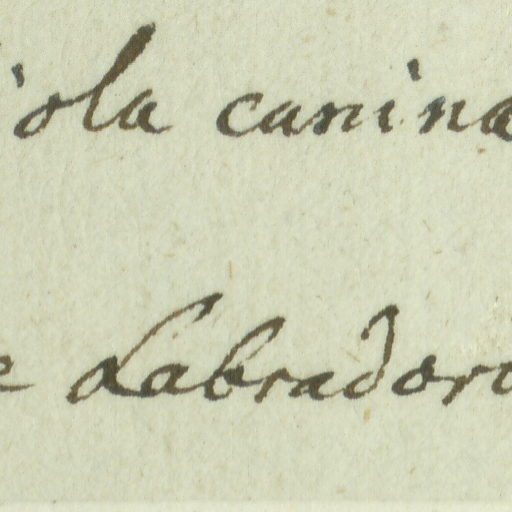 iola canina
e Labradoro